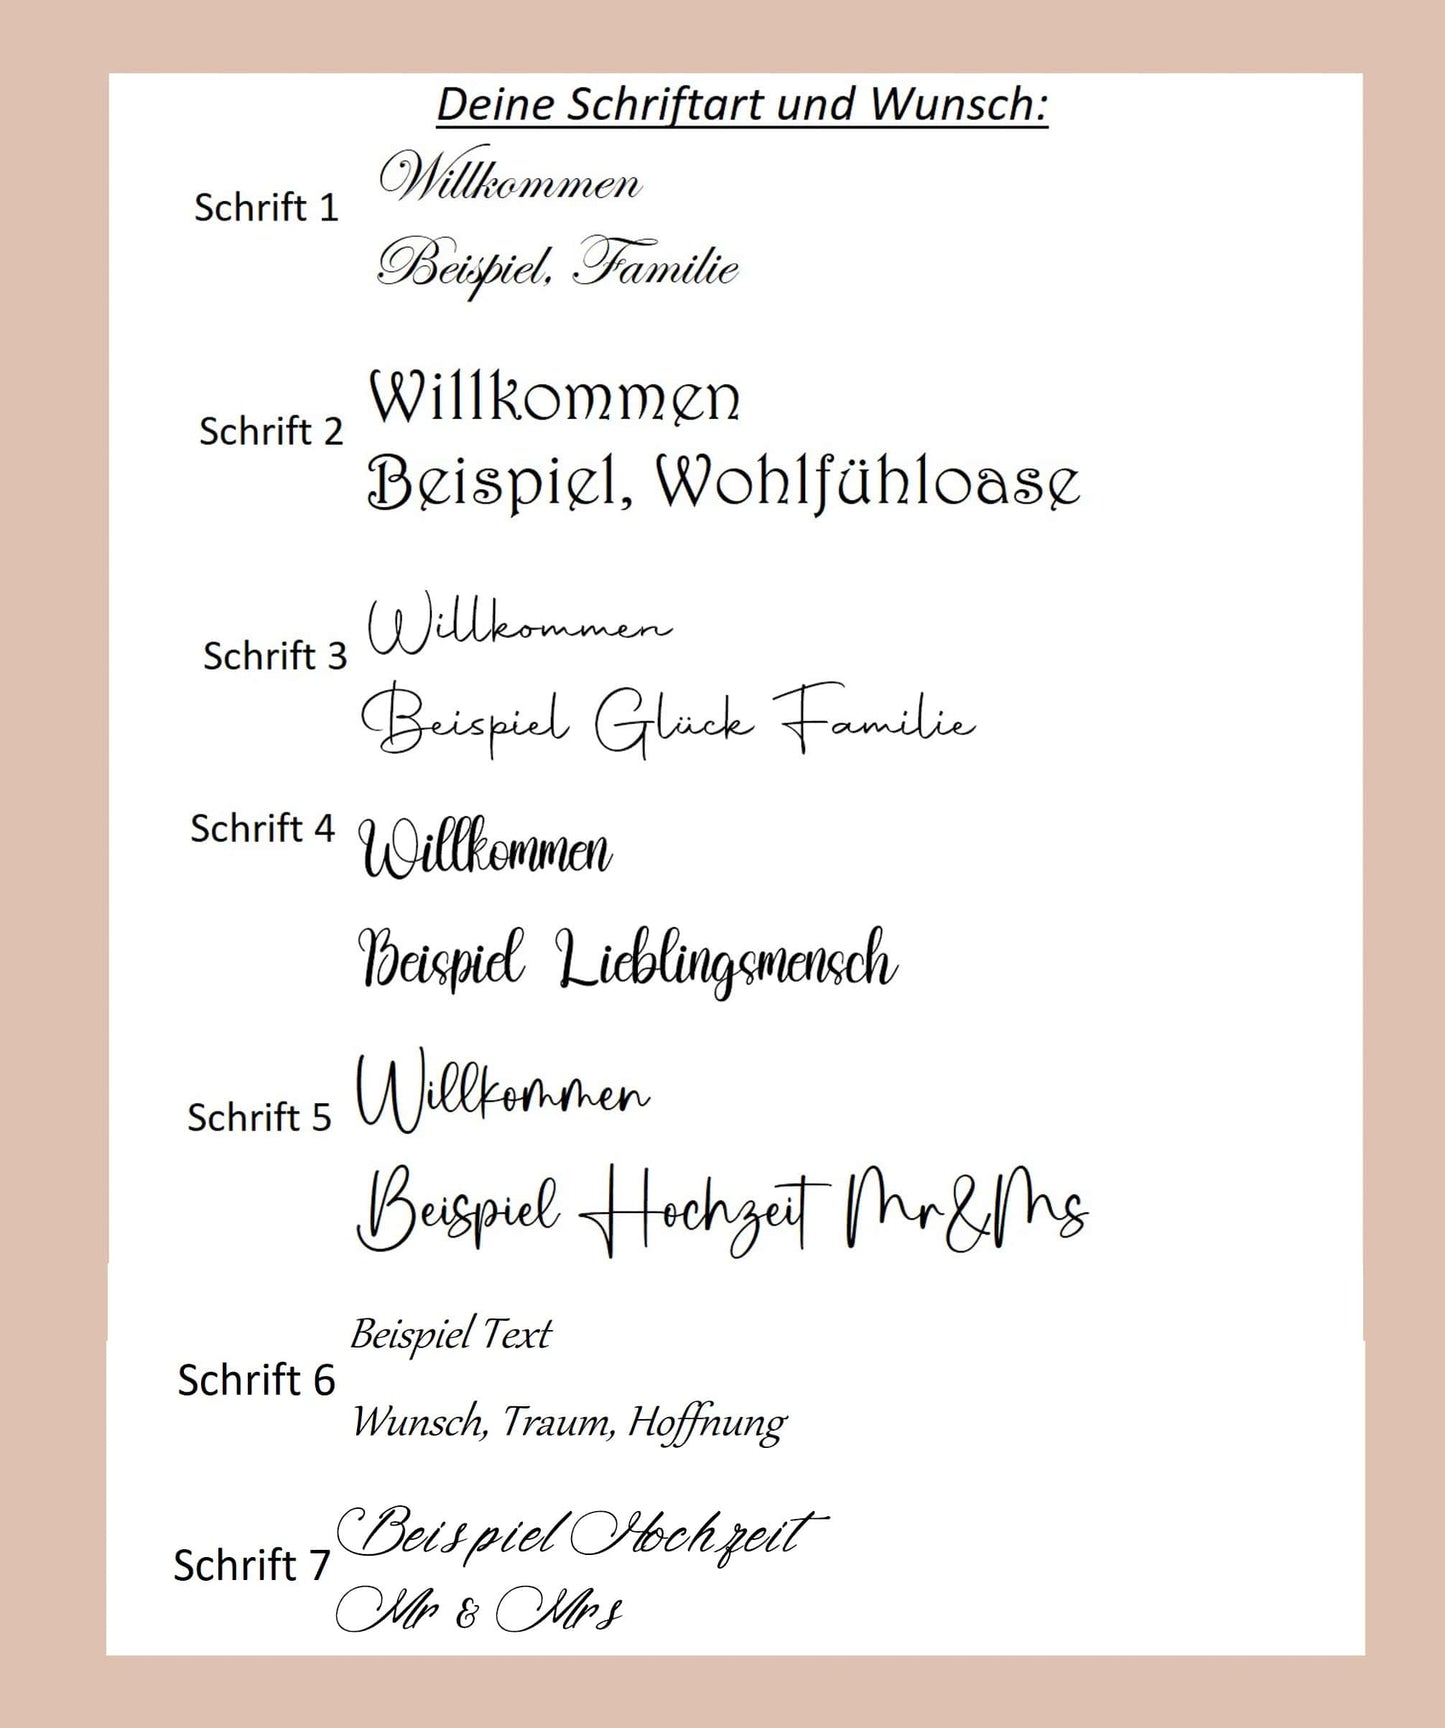 Deine Schriftart und Wunsch:
Schrift 1
Willkommen
Beispiel, Familie
Schrift 2
Willkommen
Beispiel, Wohlfühloase
Schrift 3
Willkommen
Beispiel Glück Familie
Schrift 4
Willkommen
Beispiel Lieblingsmensch
Schrift 5
Willkommen
Beispiel Hochzeit Mr&Ms
Schrift 6
Beispiel Text
Wunsch, Traum, Hoffnung
Schrift 7
Beispiel Hochzeit
Mr & Mrs